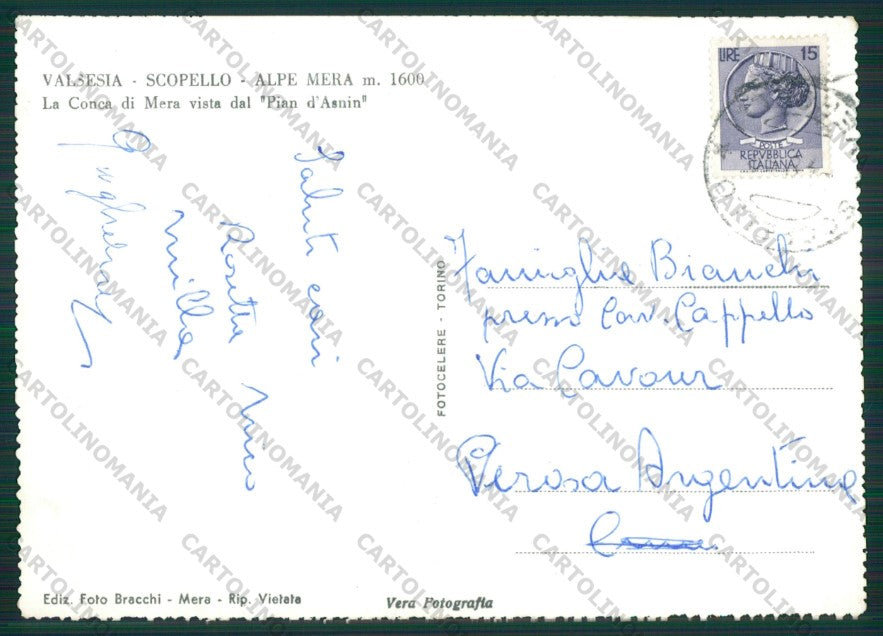 VALSESIA - SCOPELLO - ALPE MERA m. 1600
La Conca di Mera vista dal "Pian d'Asnin"
LIRE 15
POSTE
REPVBBLICA
ITALIANA
Saluti cari
Rosetta
Famiglia Bianchi
presso Cav. Cappello
Via Cavour
Perosa Argentina
FOTOCELERE - TORINO
Ediz. Foto Bracchi - Mera - Rip. Vietata
Vera Fotografia
CARTOLINOMANIA